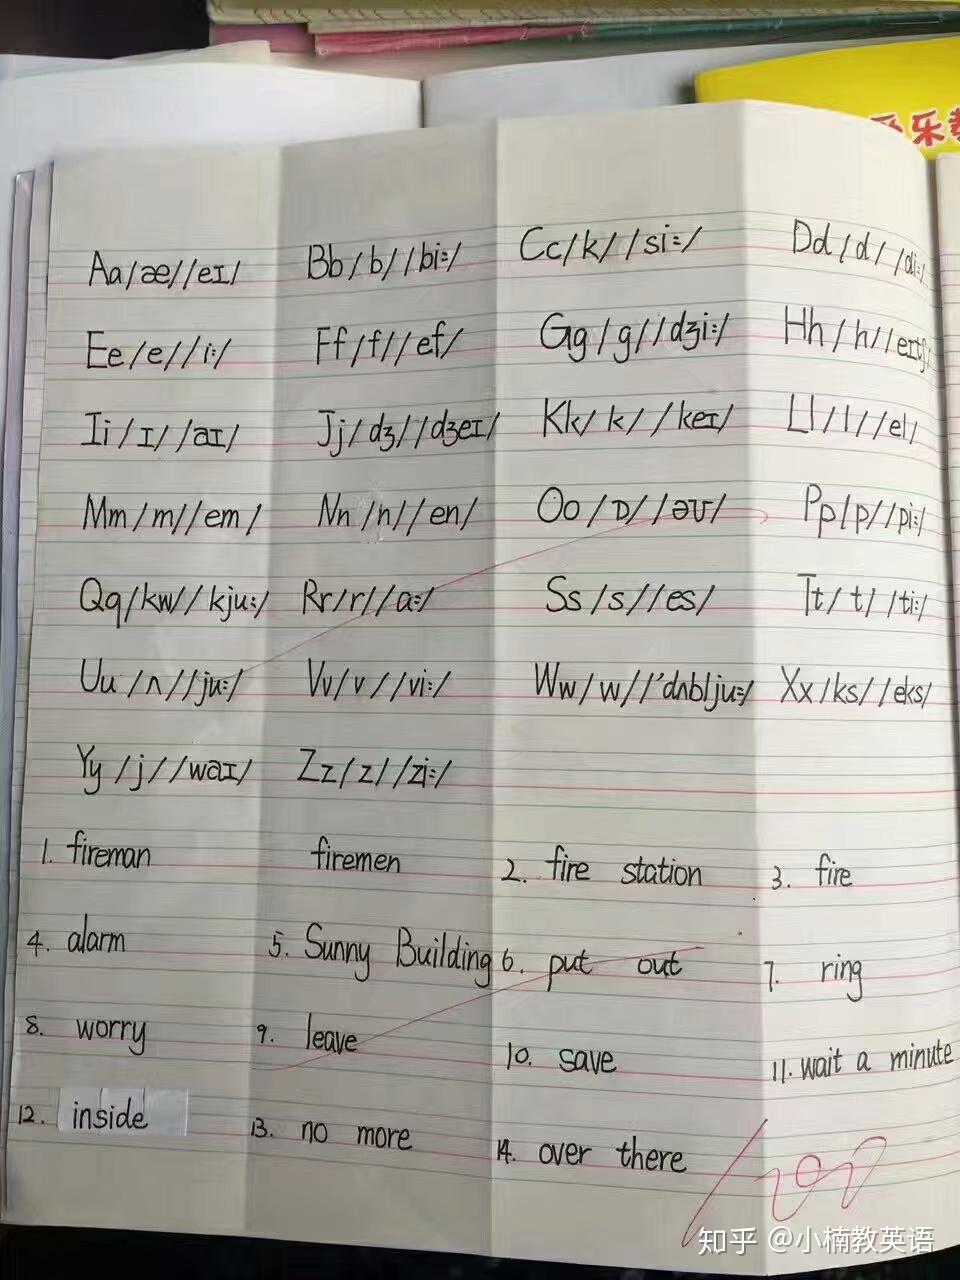 乐
Aa /æ/ /eɪ/ Bb /b/ /biː/ Cc /k/ /siː/ Dd /d/ /diː/
Ee /e/ /iː/ Ff /f/ /ef/ Gg /g/ /dʒiː/ Hh /h/ /eɪtʃ/
Ii /ɪ/ /aɪ/ Jj /dʒ/ /dʒeɪ/ Kk /k/ /keɪ/ Ll /l/ /el/
Mm /m/ /em/ Nn /n/ /en/ Oo /ɒ/ /əʊ/ Pp /p/ /piː/
Qq /kw/ /kjuː/ Rr /r/ /ɑː/ Ss /s/ /es/ Tt /t/ /tiː/
Uu /ʌ/ /juː/ Vv /v/ /viː/ Ww /w/ /'dʌbljuː/ Xx /ks/ /eks/
Yy /j/ /waɪ/ Zz /z/ /ziː/
1. fireman firemen 2. fire station 3. fire
4. alarm 5. Sunny Building 6. put out 7. ring
8. worry 9. leave 10. save 11. wait a minute
12. inside 13. no more 14. over there
100
知乎 @小楠教英语